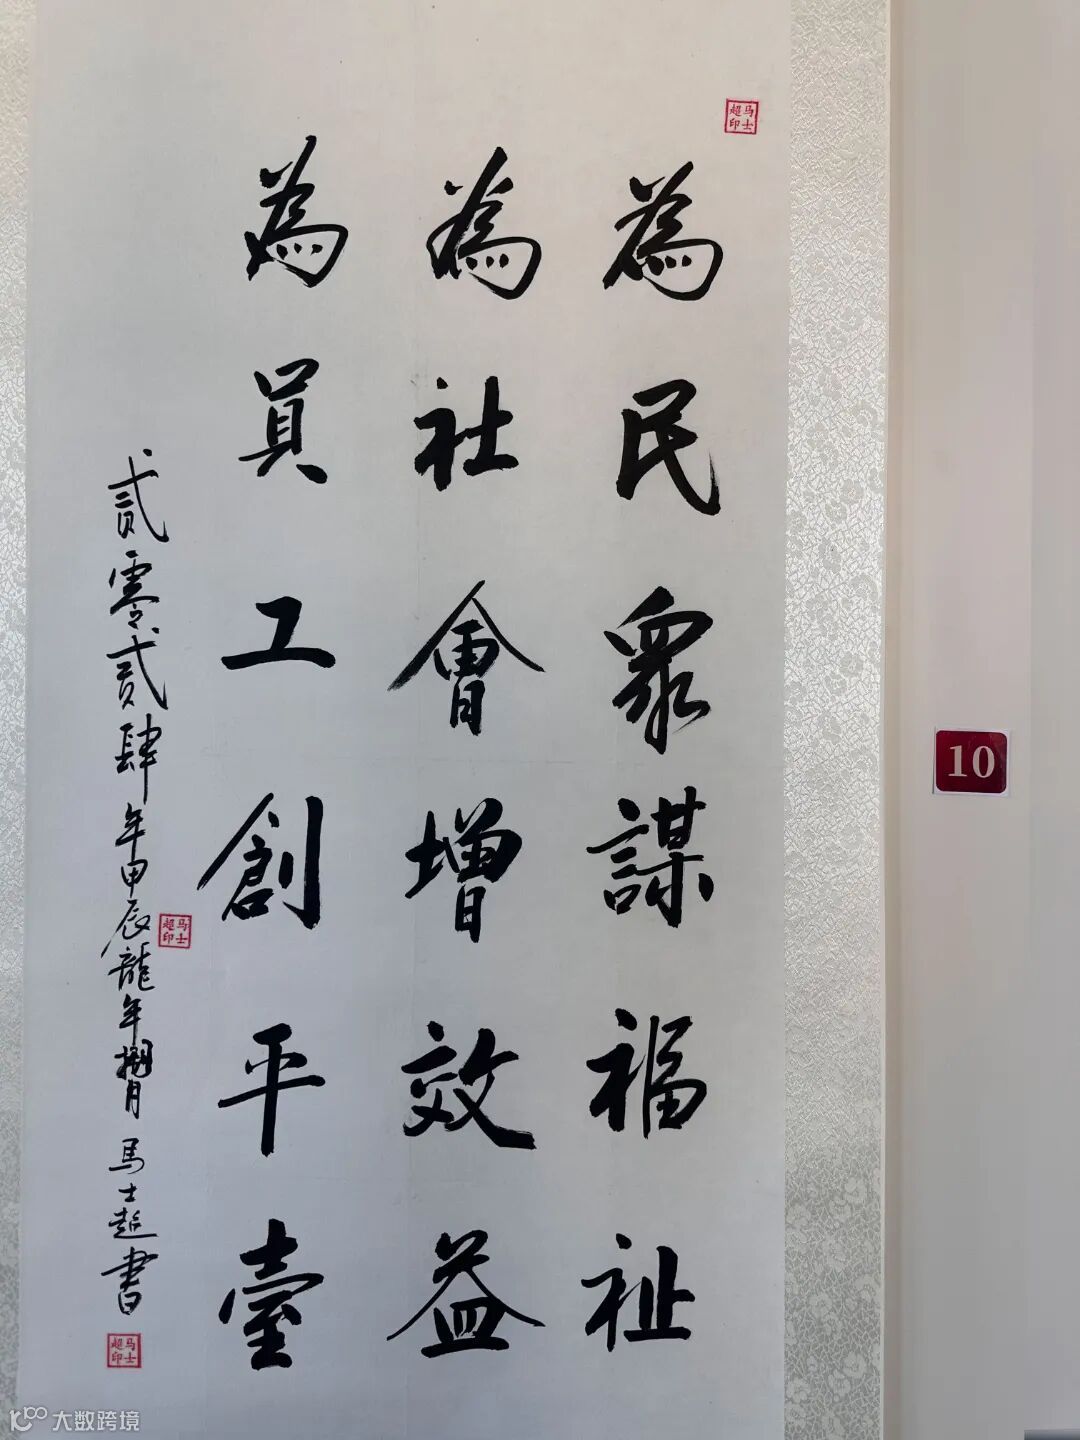 為民衆謀福祉
為社會增效益
為員工創平臺
贰零贰肆年甲辰龍年 月 馬士超書
马士超印
马士超印
马士超印
10
大数跨境